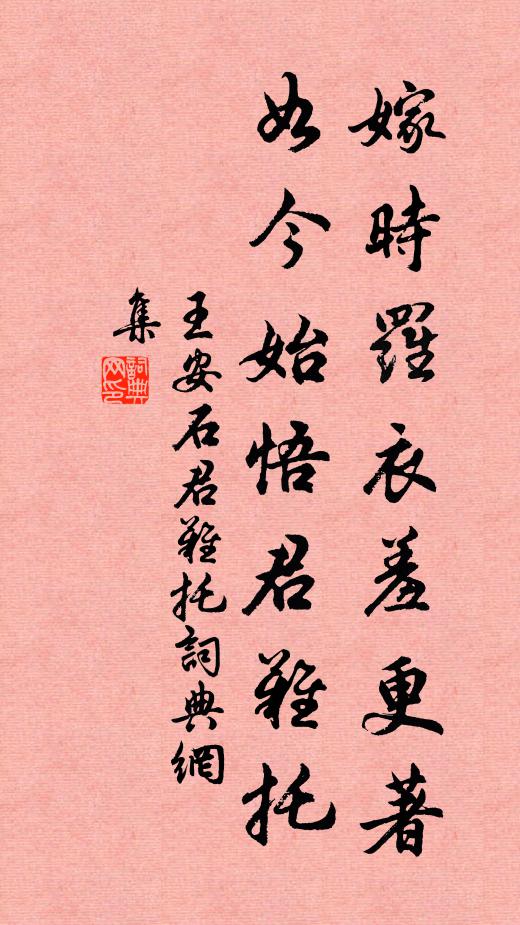 嫁時羅衣羞更著
如今始悟君難托
王安石君難托詞典網
集
詞典
网印